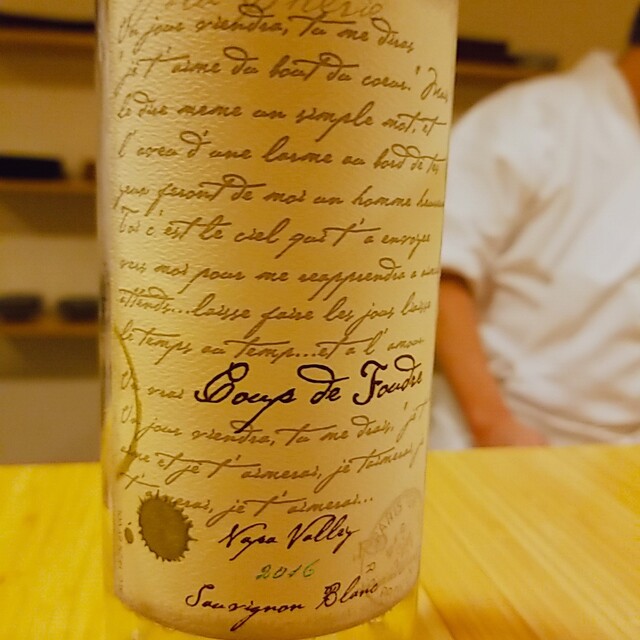 Un jour viendra, tu me diras
je t'aime du bout du cœur." Mais
le dire même un simple mot, et
l'aveu d'une larme au bord de tes
yeux feront de moi un homme heureux
Toi c'est le ciel qui t'a envoyée
vers moi pour me réapprendre à
attends...laisse faire les jours laisse
le temps au temps...et a l'amour
Un vrai Coup de Foudre
Un jour viendra, tu me diras, "je t'
et je t'aimerai, je t'aimerai
je t'aimerai...
Napa Valley
2016
Sauvignon Blanc